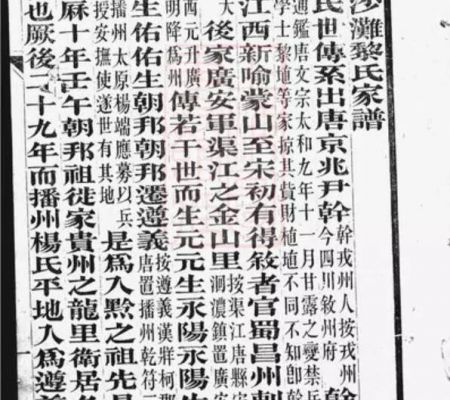 沙灘黎氏家譜
氏世傳系出唐京兆尹幹
幹戎州人按戎州
今四川敘州府
幹
通鑑唐文宗太和九年十一月甘露之變禁兵
學士黎埴等家掠其貲財植埴不同不知卽幹
江西新喻蒙山至宋初有得敘者官蜀昌州刺
後家廣安軍渠江之金山里
按渠江唐縣宋
洄濃鎮置廣安
西元升廣
明降為州
傳若干世而生元元生永陽永陽生
生佑佑生朝邦朝邦遷遵義
按遵義漢牂柯郡
唐置播州乾符三
播州太原楊端應募以兵
授安撫使遂世有其地
是為入黔之祖先是
麻十年壬午朝邦祖徙家貴州之龍里衛居
也厥後二十九年而播州楊氏平地入為遵義